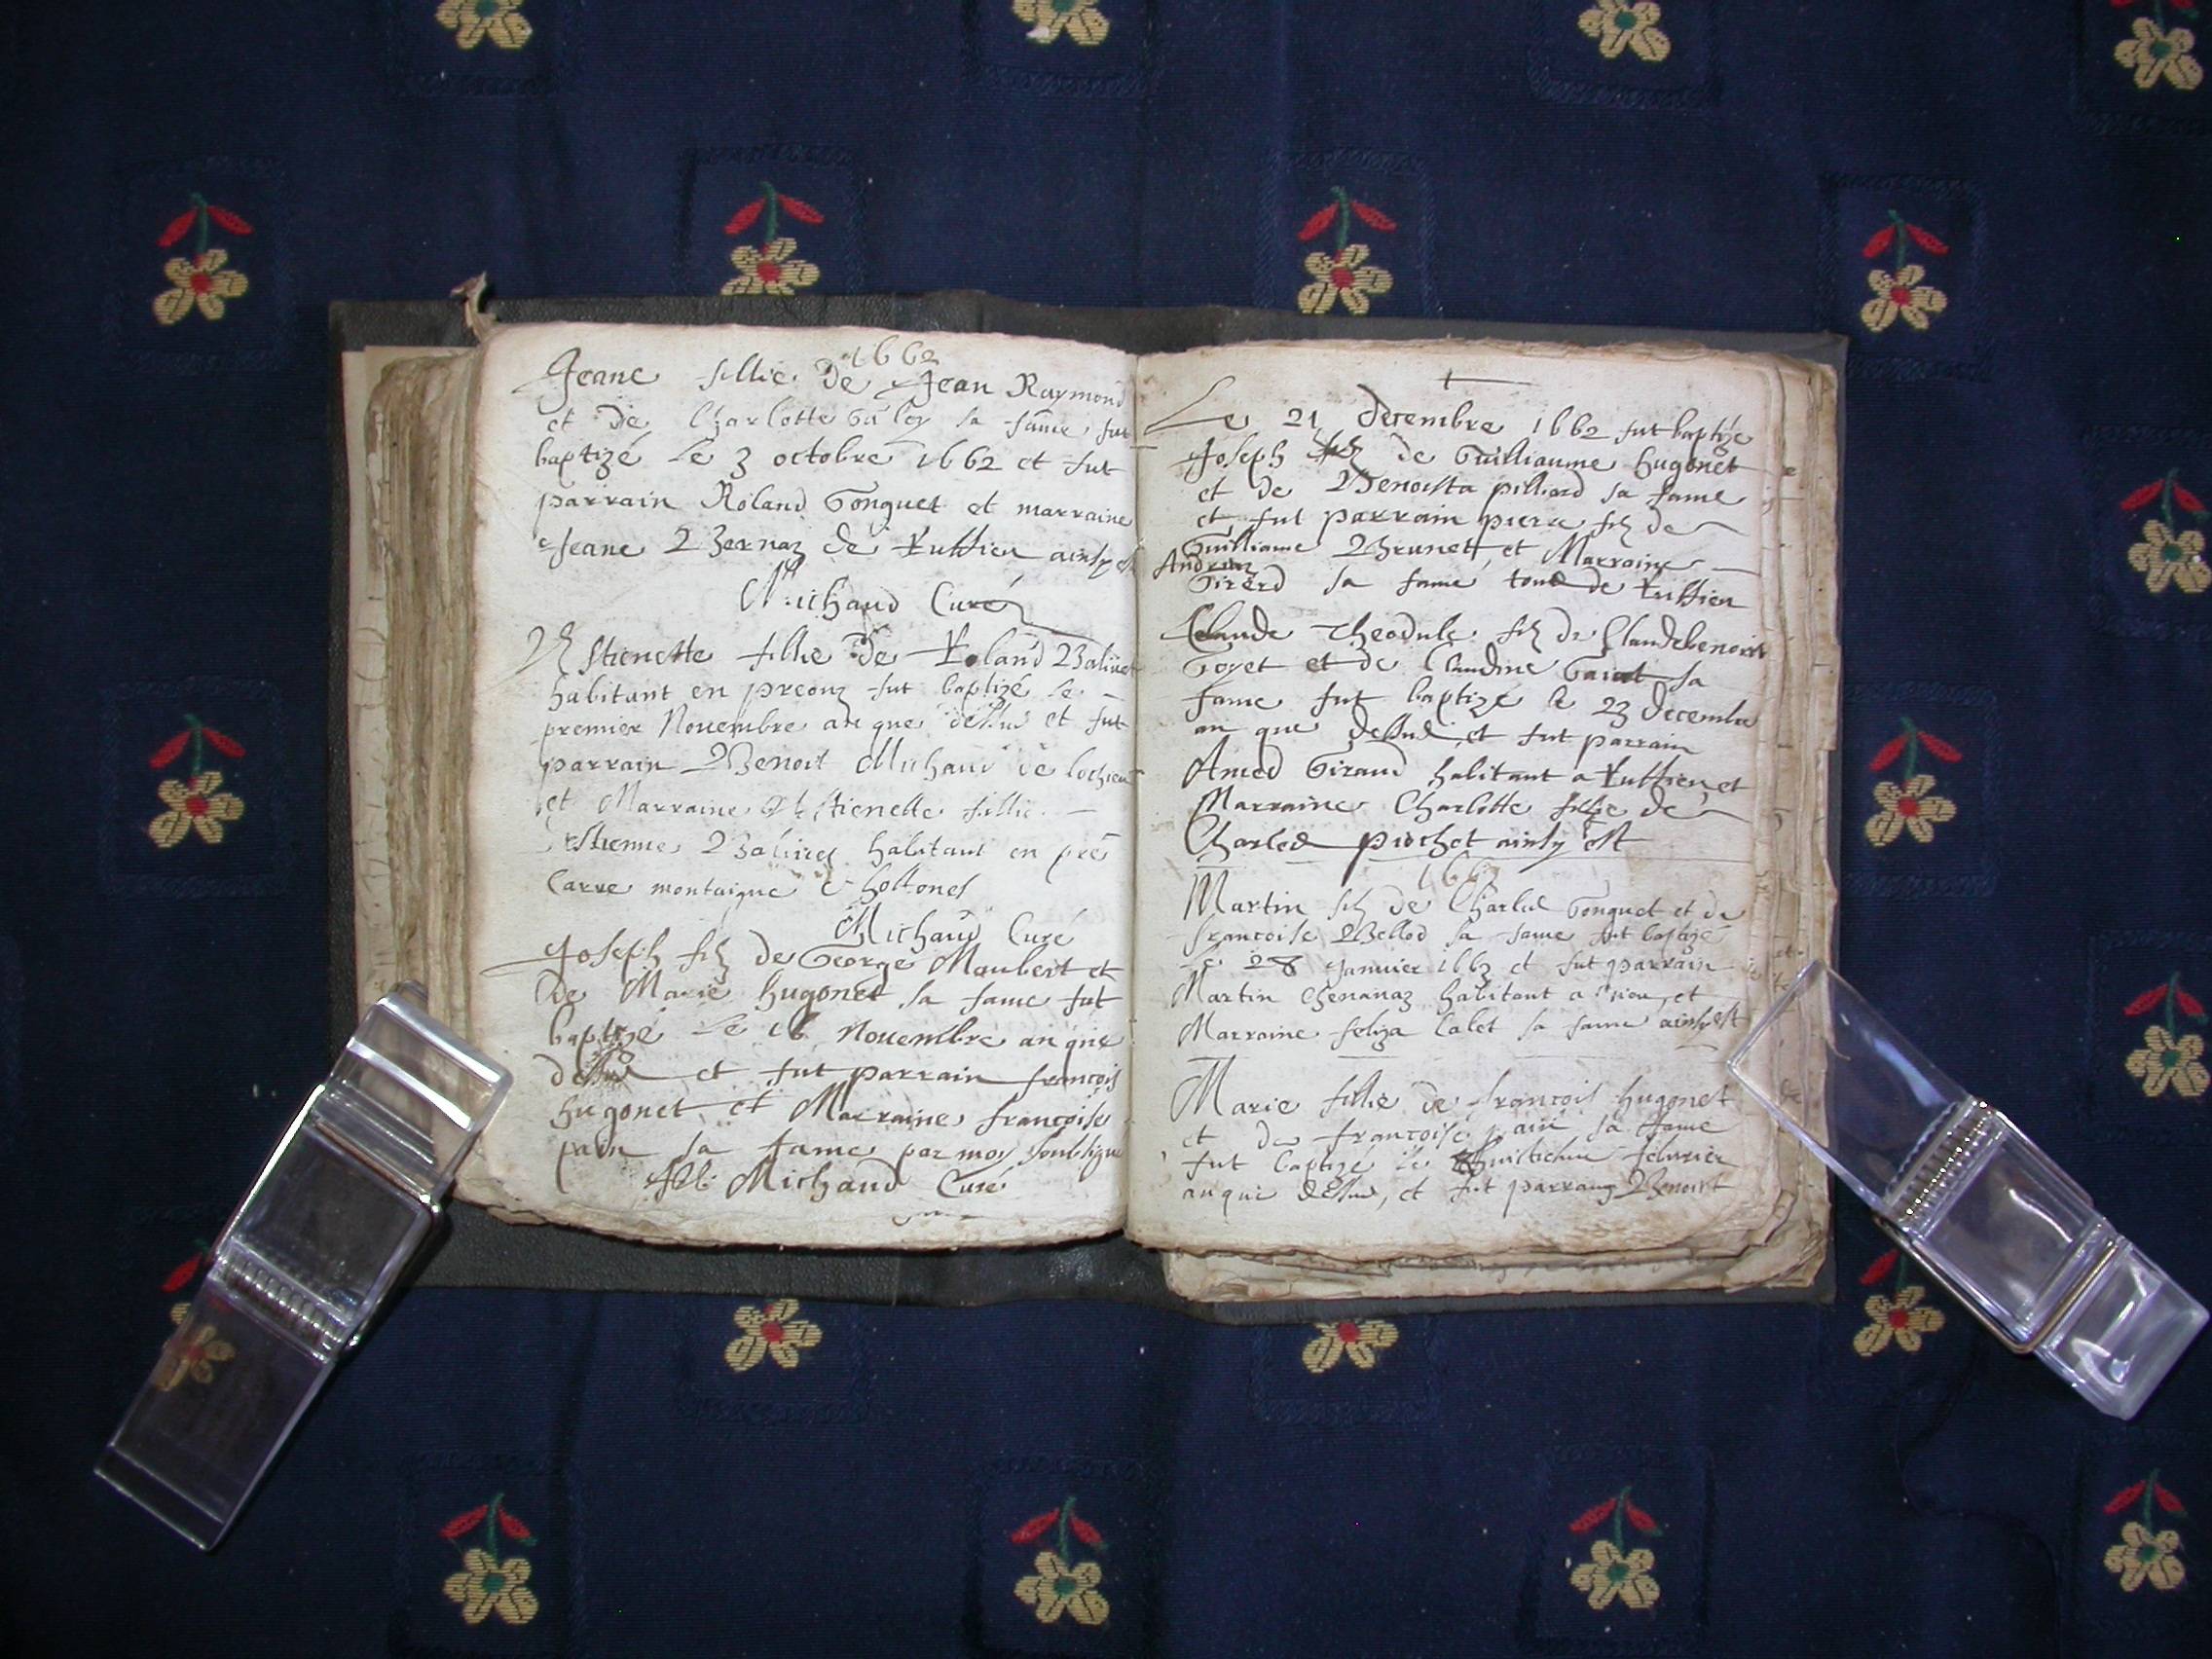 1662
Jeane fillie de Jean Raymond
et de Charlotte Galey sa fame fut
baptizé le 3 octobre 1662 et fut
parrain Roland Gonguet et marraine
Jeane Bernaz de Ruffieu ainsy est
Michaud Curé
Estienette fillie de Roland Balivet
habitant en preouz fut baptizé le
premier Nouembre an que dessus et fut
parrain Benoit Michaud de lochieu
et Marraine Estienette fillie
Estienne Balivet habitant en pré
Carre montaigne hostones
Michaud Curé
Joseph filz de George Maubert et
de Marie hugonet sa fame fut
baptizé le 16 Nouembre an que
dessus et fut parrain francois
hugonet et Marraine francoise
pain sa fame par moy soubsigné
Michaud Curé
Le 21 decembre 1662 fut baptize
Joseph filz de Guilliaume hugonet
et de Benoista pilliard sa fame
et fut parrain piere filz de
Guilliame Brunet et Marraine
Andrea
Girerd sa fame tous de Ruffieu
Claude Theodule filz de Claudebenoist
Goyet et de Claudine sa
fame fut baptizé le 23 decembre
an que dessus et fut parrain
Amed Giraud habitant a Ruffieu et
Marraine Charlotte fillie de
Charles piochet ainsy est
1663
Martin filz de Charles Gonguet et de
francoise Bellod sa fame fut baptizé
le 28 Januier 1663 et fut parrain
Martin Chenanaz habitant a et
Marraine feliza Calet sa fame ainsy est
Marie fillie de francois hugonet
et de francoise pain sa fame
fut baptizé le huictieme februier
an que dessus, et fut parrain Benoist